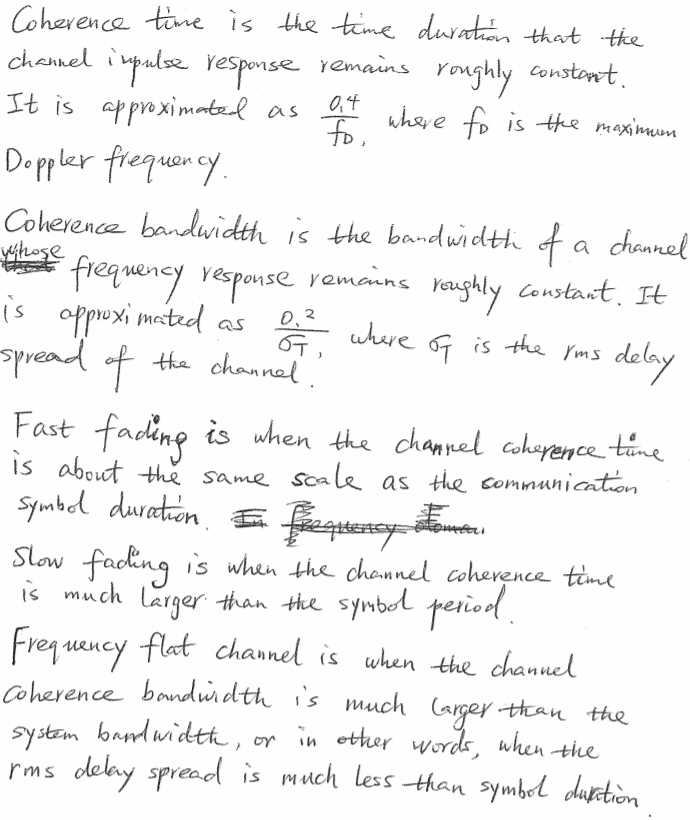 Coherence time is the time duration that the
channel inpulse response remains roughly constant.
It is approximated as 0.4/f_D, where f_D is the maximum
Doppler frequency.
Coherence bandwidth is the bandwidth of a channel
whose frequency response remains roughly constant. It
is approximated as 0.2/σ_T, where σ_T is the rms delay
spread of the channel.
Fast fading is when the channel coherence time
is about the same scale as the communication
symbol duration.
Slow fading is when the channel coherence time
is much larger than the symbol period.
Frequency flat channel is when the channel
coherence bandwidth is much larger than the
system bandwidth, or in other words, when the
rms delay spread is much less than symbol duration.